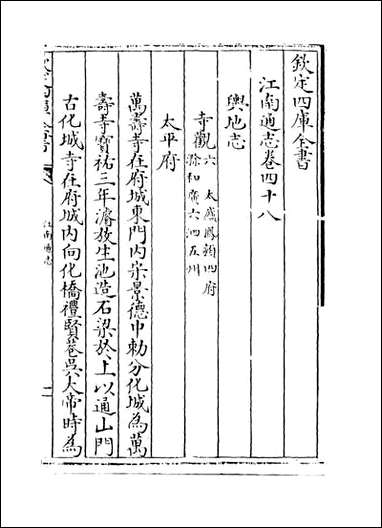 欽定四庫全書
江南通志卷四十八
輿地志
寺觀六 太廬鳳潁四府
滁和廣六泗五州
太平府
萬壽寺在府城東門内宋景德中勅分化城為萬
壽寺寶祐三年濬放生池造石梁於上以通山門
古化城寺在府城内向化橋禮賢巷吳大帝時為
江南通志